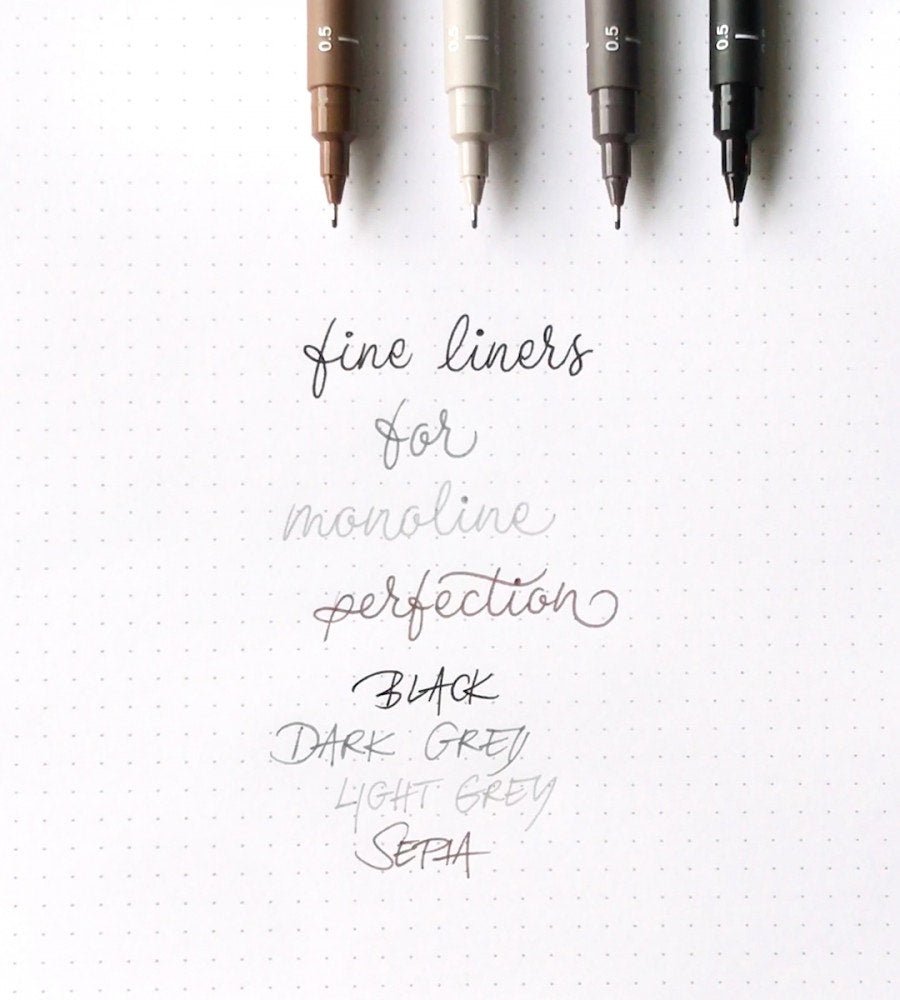 0.5 0.5 0.5 0.5
fine liners
for
monoline
perfection
BLACK
DARK GREY
LIGHT GREY
SEPIA